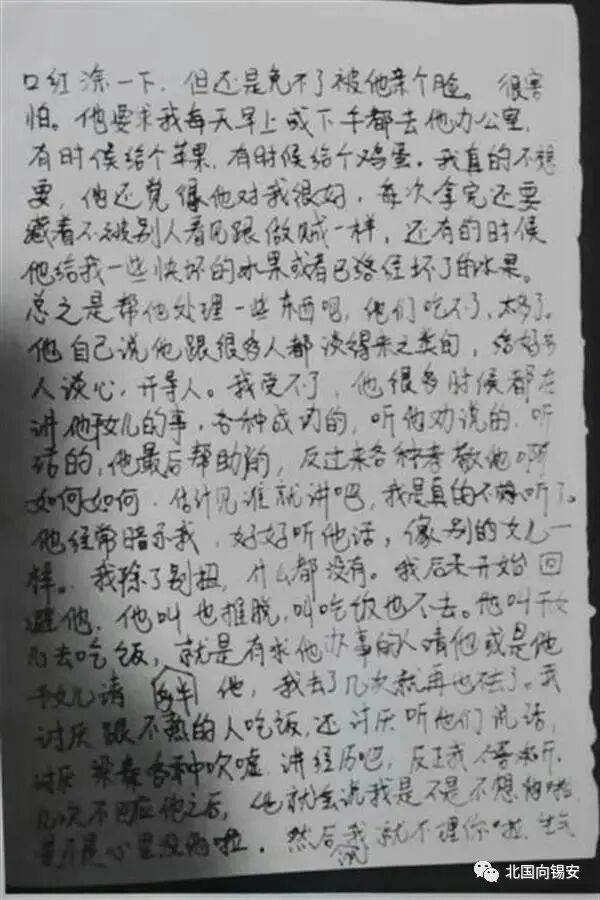 口红涂一下，但还是免不了被他亲个脸。很害
怕。他要求我每天早上或下午都去他办公室，
有时候给个苹果，有时候给个鸡蛋。我真的不想
要，他还觉得他对我很好，每次拿完还要
藏着不被别人看见跟做贼一样，还有的时候
他给我一些快坏的水果或者已经坏了的水果。
总之是帮他处理一些东西吧，他们吃不了，太多了。
他自己说他跟很多人都谈得来之类的，给好多
人谈心，开导人。我受不了，他很多时候都在
讲他干女儿的事，各种成功的，听他劝说的，听
话的，他最后帮助的，反过来各种孝敬他啊
如何如何，估计见谁就讲吧，我是真的不想听了。
他经常暗示我，好好听他话，像别的女儿一
样。我除了别扭，什么都没有。我后来开始回
避他，他叫也推脱，叫吃饭也不去。他叫干女
儿去吃饭，就是有求他办事的人请他或是他
干女儿请 他，我去了几次就再也不去了。我
讨厌跟不熟的人吃饭，还讨厌听他们说话，
讨厌 各种吹嘘，讲经历吧，反正我
几次不回应他之后，他就会说我是不是不想他啦，
是不是心里没他啦，然后我就不理你啦，生气